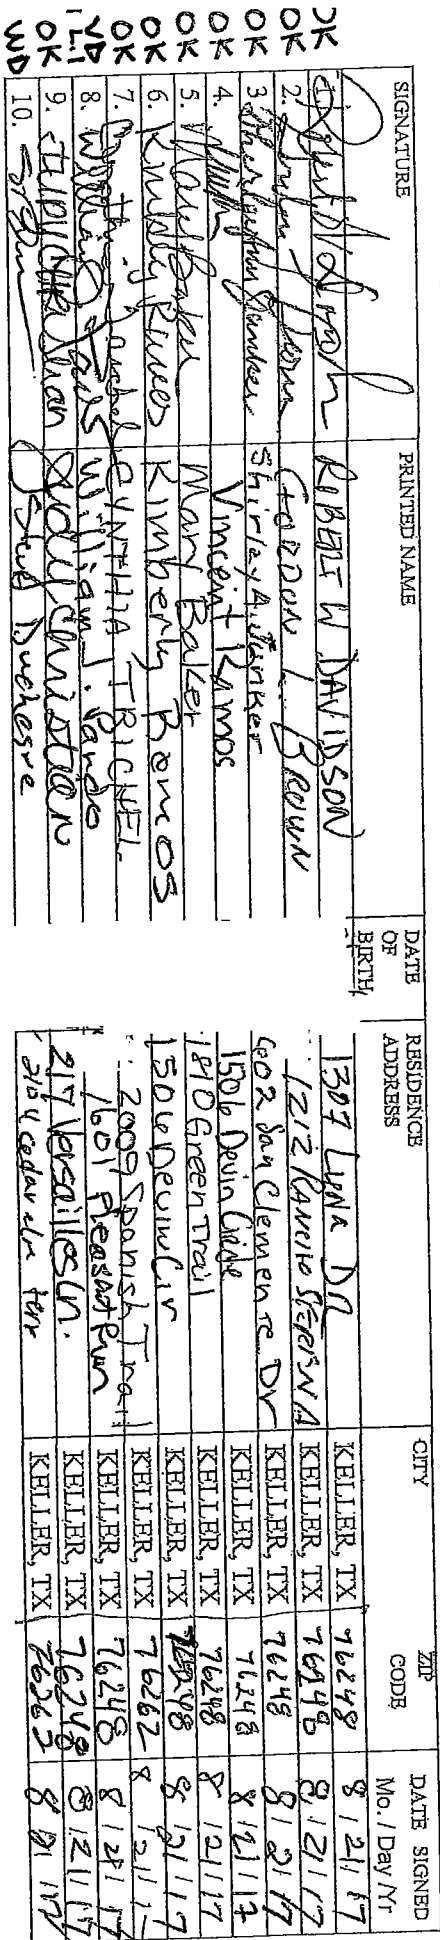 SIGNATURE PRINTED NAME DATE OF BIRTH RESIDENCE ADDRESS CITY ZIP CODE DATE SIGNED Mo. / Day / Yr
OK 1. ROBERT W DAVIDSON 1307 LUNA DR KELLER, TX 76248 8 / 21 / 17
OK 2. GORDON L. BROWN 1212 RANCHO SERENA KELLER, TX 76248 8 / 21 / 17
OK 3. Shirley A Junker Shirley A. Junker 602 San Clemente Dr KELLER, TX 76248 8 / 21 / 17
OK 4. Vincent Ramos 1506 Devin Circle KELLER, TX 76248 8 / 21 / 17
OK 5. Mary Baker Mary Baker 1810 Green Trail KELLER, TX 76248 8 / 21 / 17
OK 6. Kimberly Ramos Kimberly Ramos 1506 Devin Cir KELLER, TX 76248 8 / 21 / 17
OK 7. CYNTHIA TRICHEL 2009 Spanish Trail KELLER, TX 76262 8 / 21 / 17
8. William J. Pardo 1601 Pleasant Run KELLER, TX 76248 8 / 21 / 17
OK 9. Christian 217 Versailles Ln. KELLER, TX 76248 8 / 21 / 17
WD 10. Steve Duchesne 2104 cedar elm terr KELLER, TX 76262 8 / 21 / 17